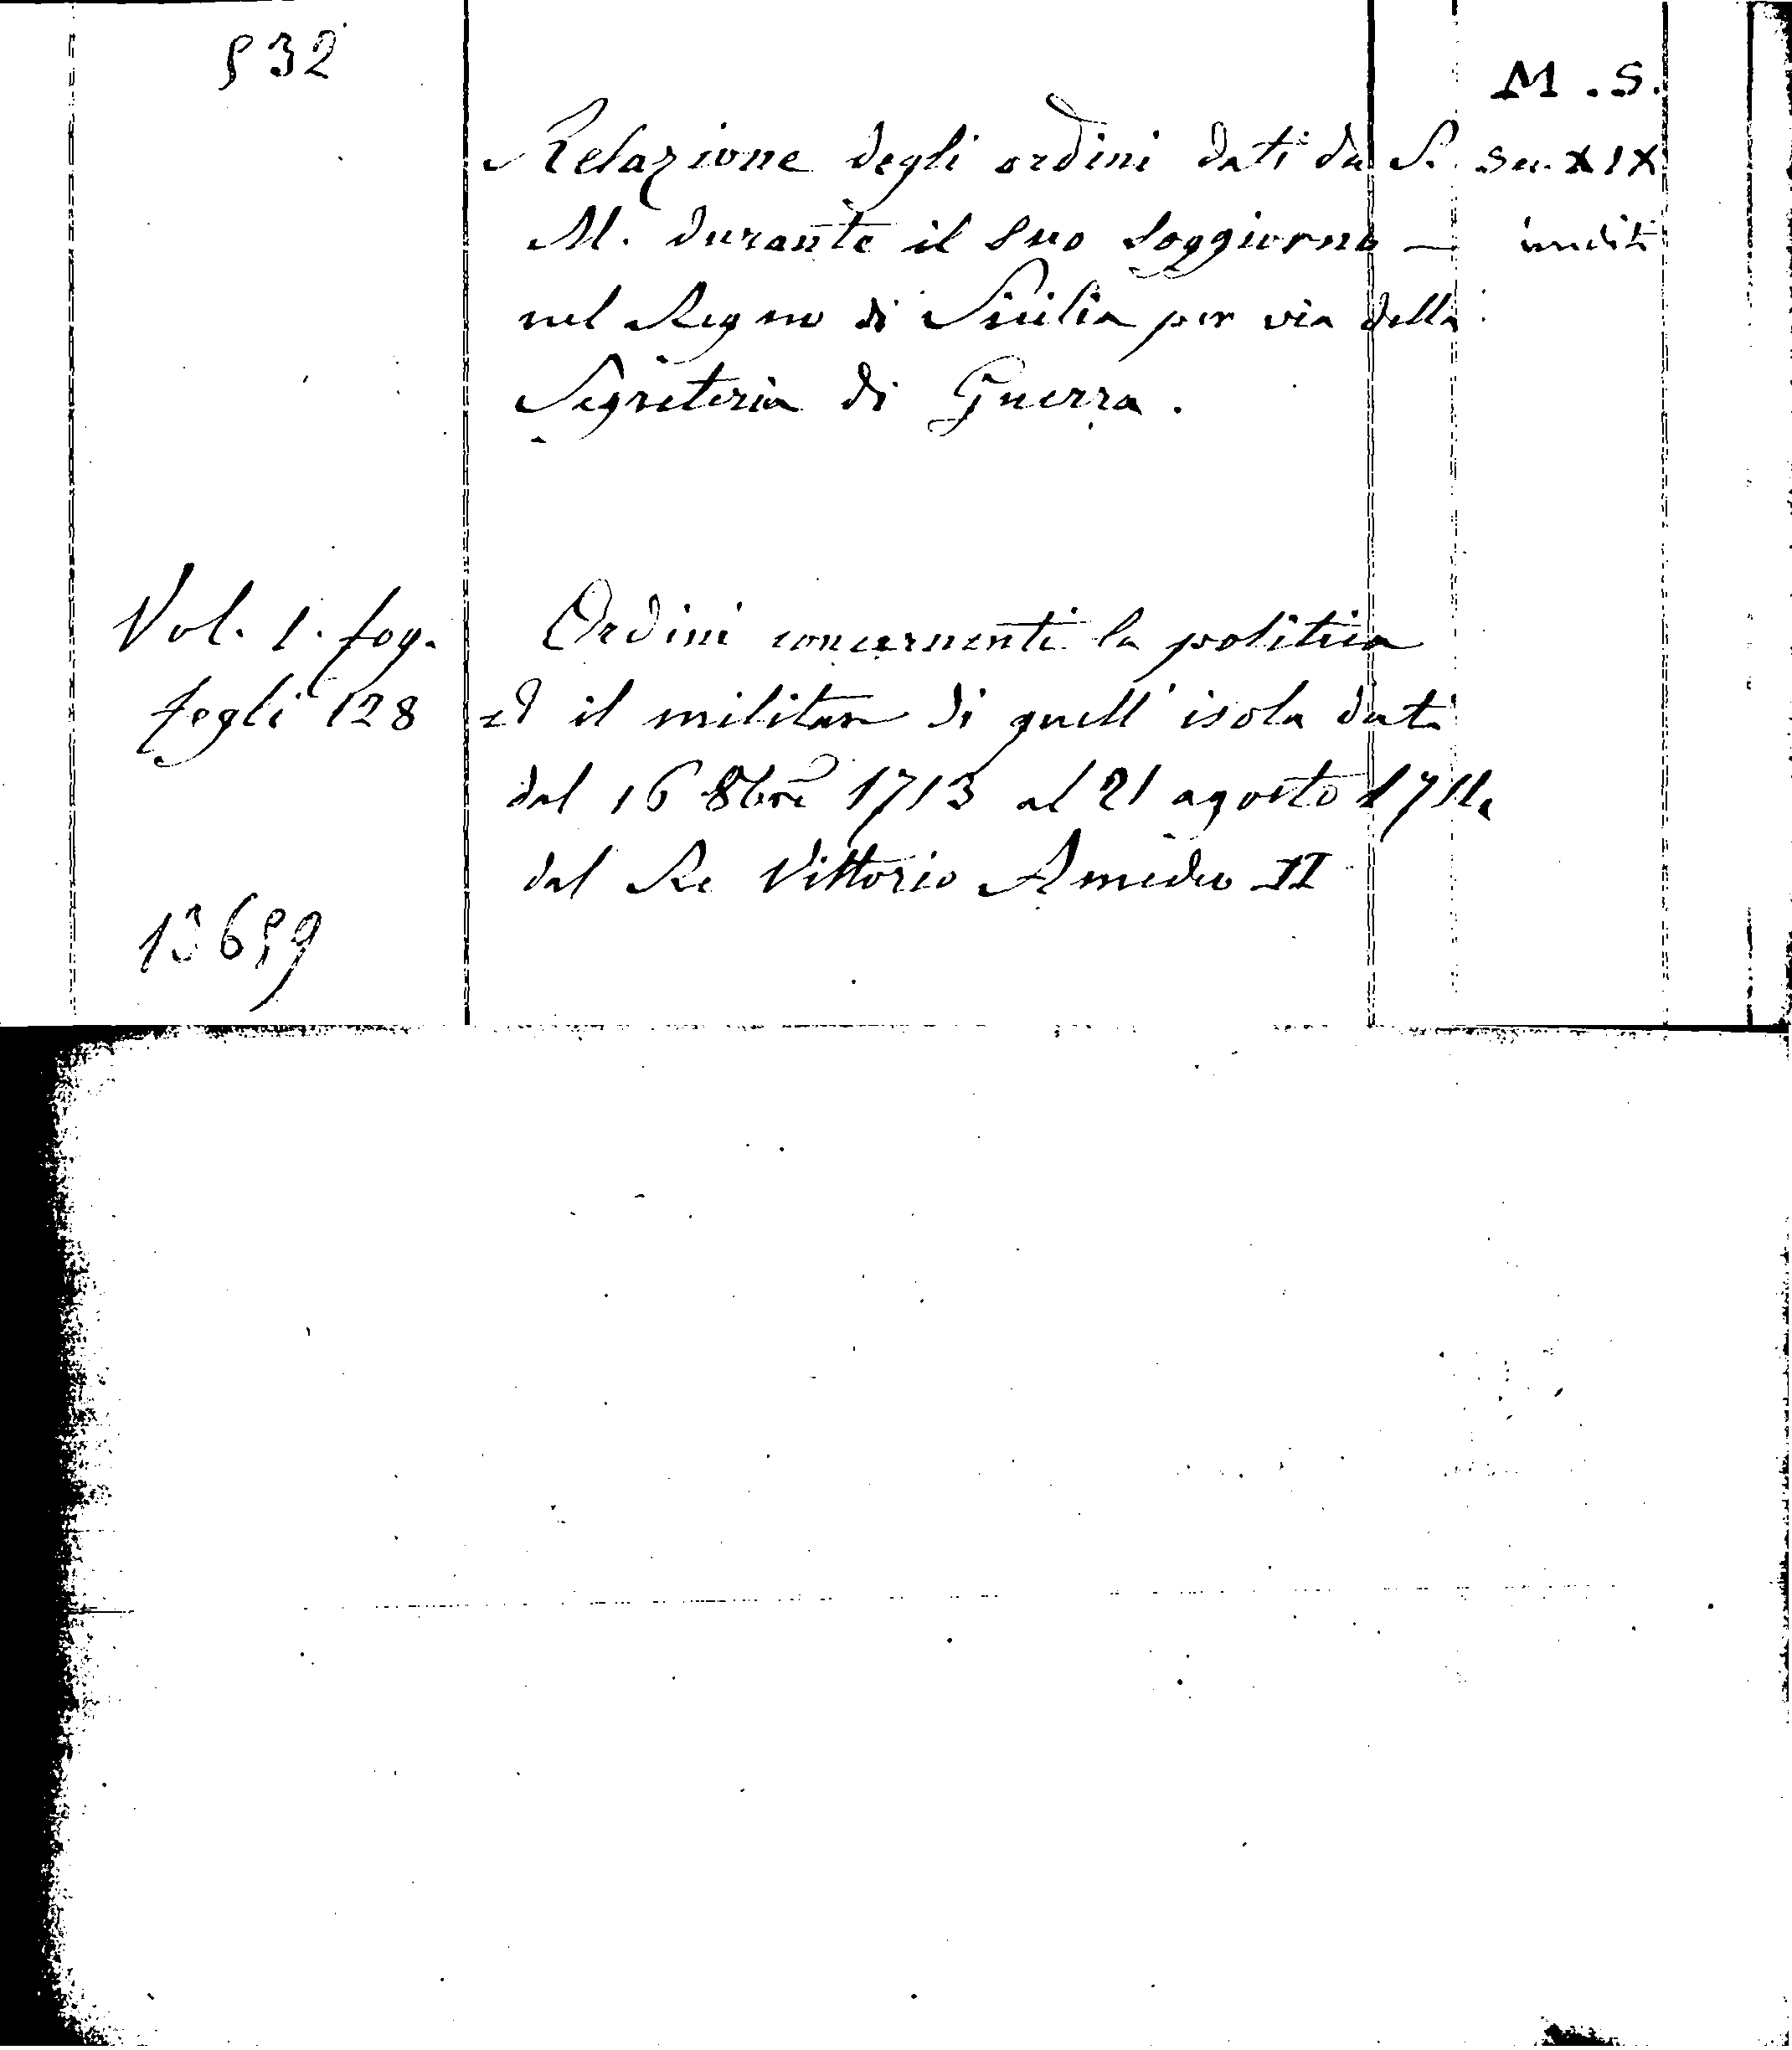 532
M. S.
Relazione degli ordini dati da S. Sec. XIX
M. durante il suo soggiorno — inediti
nel Regno di Sicilia per via della
Segreteria di Guerra.
Vol. 1. fog. Ordini concernenti la politica
fogli 128 ed il militare di quell'isola dati
dal 16 8bre 1713 al 21 agosto 1714
dal Re Vittorio Amedeo II
13659